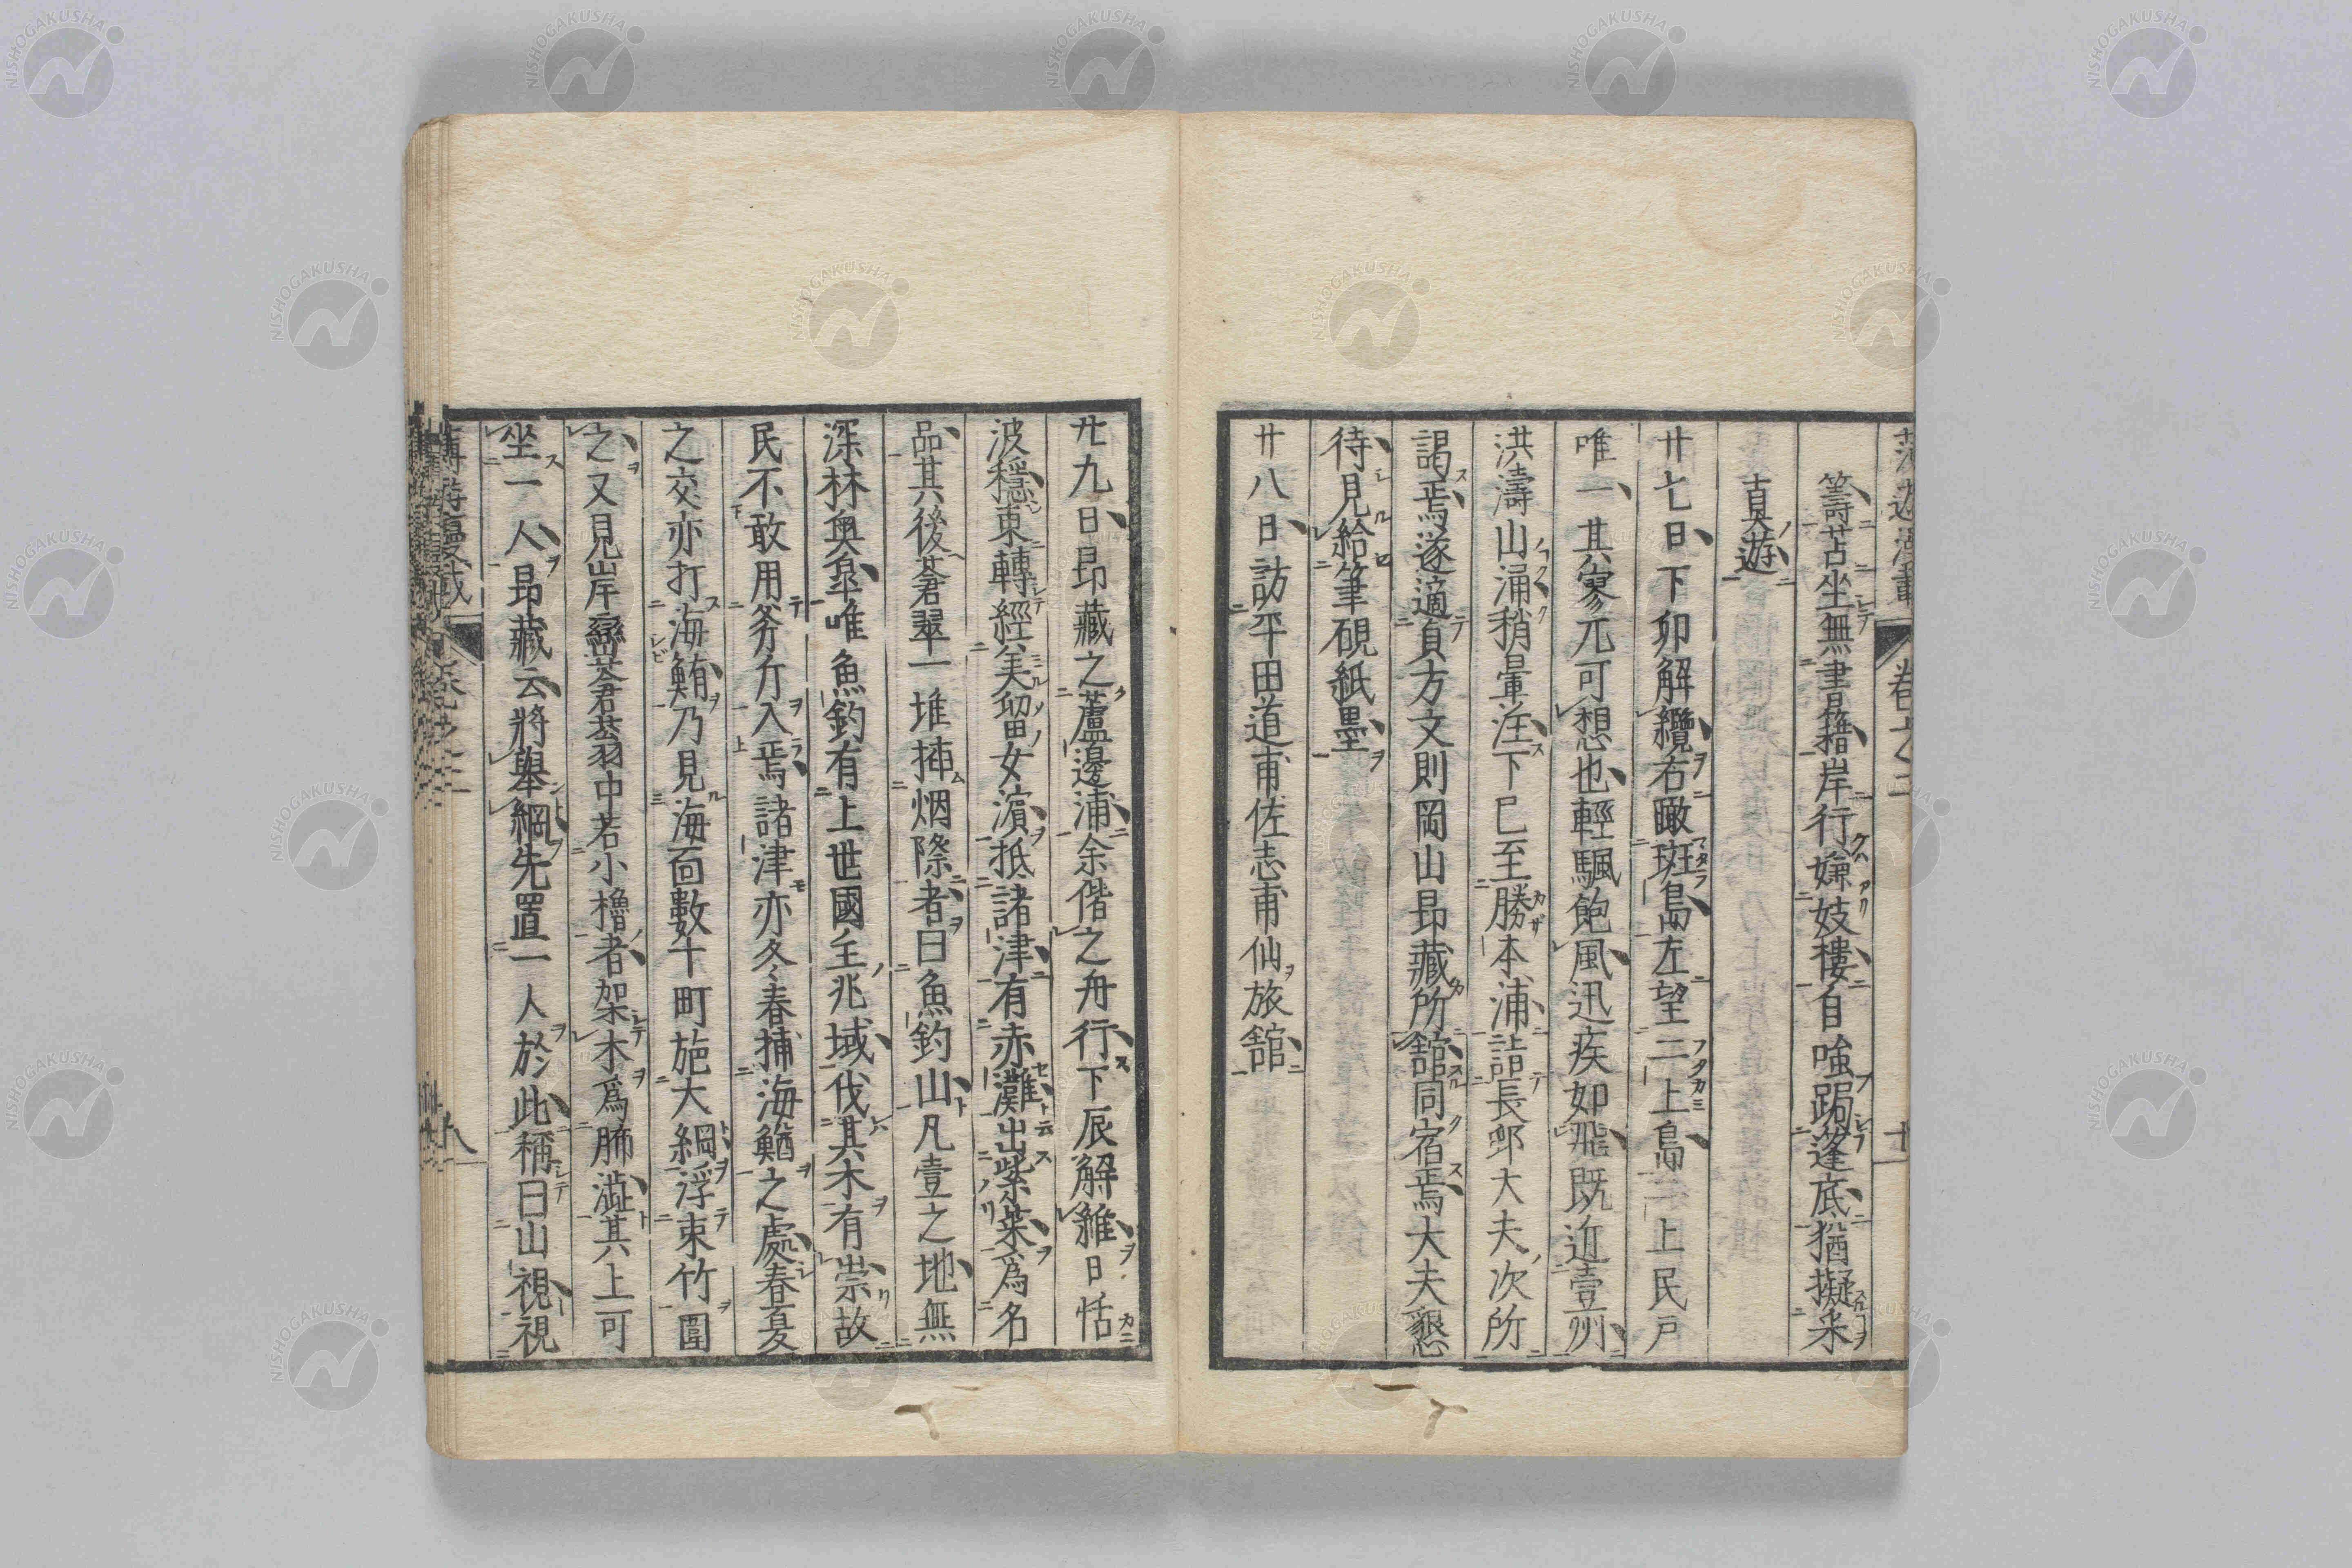 籌苦坐無書籍岸行嫌妓樓自嗤跼篷底猶擬采
真遊
廿七日下卯解纜右瞰斑島左望二上島二上民戸
唯一其寥兀可想也輕颿飽風迅疾如飛既近壹州
洪濤山涌稍暈注下巳至勝本浦詣長邨大夫次所
謁焉遂適貞方文則岡山昻藏所舘同宿焉大夫懇
待見給筆硯紙墨
廿八日訪平田道甫佐志甫仙旅舘
廿九日昻藏之蘆邊浦余偕之舟行下辰解維日恬
波穩東轉經美留女濱抵諸津有赤灘出紫菜爲名
品其後蒼翠一堆揷烟際者曰魚釣山凡壹之地無
深林奧皐唯魚釣有上世國主兆域伐其木有崇故
民不敢用斧斤入焉諸津亦冬春捕海鰌之處春夏
之交亦打海鮪乃見海面數十町施大綱浮東竹圍
之又見岸巒蒼蓊中若小櫓者架木爲肺澁其上可
坐一人昻藏云將舉綱先置一人於此稱曰山視視
NISHOGAKUSHA